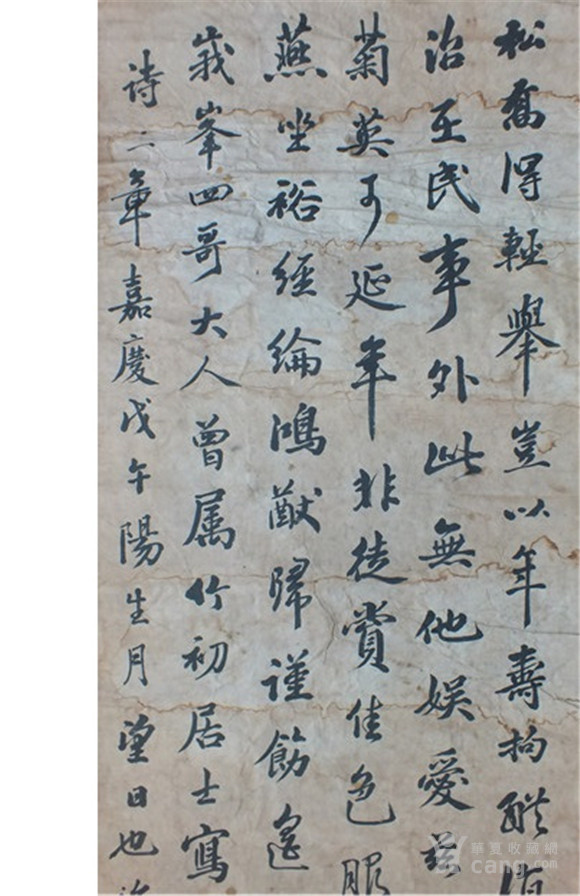 松喬得輕舉豈以年壽拘醲
治至民事外此無他娛愛茲
菊英可延年非徒賞佳色服
燕坐裕經綸鴻猷歸謹飭遙
峩峯四哥大人曾属竹初居士寫
诗二章嘉慶戊午陽生月望日也
華夏收藏網
cang.com